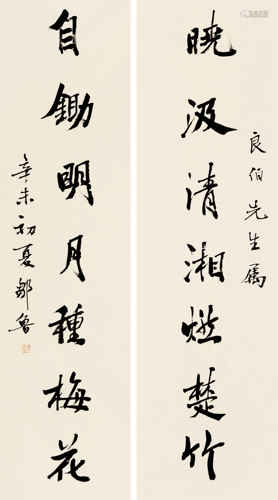 曉汲清湘燃楚竹
良伯先生属
自鋤明月種梅花
辛未初夏鄒魯